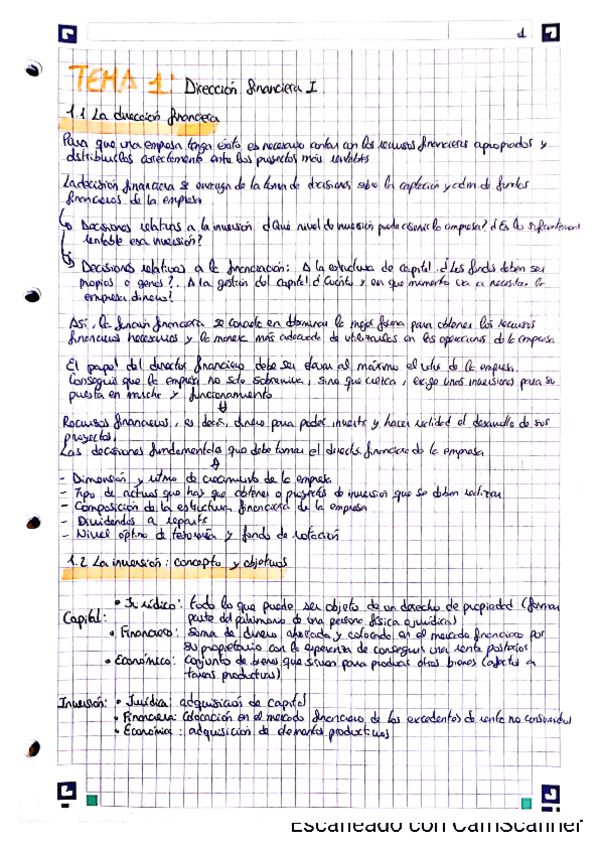 1
TEMA 1: Dirección financiera I
1.1 La dirección financiera
Para que una empresa tenga éxito es necesario contar con los recursos financieros apropiados y
distribuirlos correctamente entre los proyectos más rentables
La decisión financiera se encarga de la toma de decisiones sobre la captación y adm de fondos
financieros de la empresa
Decisiones relativas a la inversión ¿Qué nivel de inversión puede asumir la empresa? ¿Es lo suficientemente
rentable esa inversión?
Decisiones relativas a la financiación: A la estructura de capital ¿Los fondos deben ser
propios o ajenos?. A la gestión del capital ¿Cuánto y en que momento va a necesitar la
empresa dinero?
Así, la función financiera se concreta en determinar la mejor forma para obtener los recursos
financieros necesarios y la manera más adecuada de utilizarlos en las operaciones de la empresa
El papel del director financiero debe ser elevar al máximo el valor de la empresa.
Conseguir que la empresa no solo sobreviva, sino que crezca, exige unas inversiones para su
puesta en marcha y funcionamiento
Recursos financieros, es decir, dinero para poder invertir y hacer realidad el desarrollo de sus
proyectos.
Las decisiones fundamentales que debe tomar el director financiero de la empresa
- Dimensión y ritmo de crecimiento de la empresa
- Tipo de activos que hay que obtener o proyectos de inversión que se deben realizar
- Composición de la estructura financiera de la empresa
- Dividendos a repartir
- Nivel óptimo de tesorería y fondo de rotación
1.2 La inversión: concepto y objetivos
Capital:
• Jurídico: todo lo que puede ser objeto de un derecho de propiedad (forma
parte del patrimonio de una persona física o jurídica)
• Financiero: suma de dinero ahorrada y colocada en el mercado financiero por
su propietario con la esperanza de conseguir una renta posterior
• Económico: conjunto de bienes que sirven para producir otros bienes (afectos a
tareas productivas)
Inversión: • Jurídica: adquisición de capital
• Financiera: Colocación en el mercado financiero de los excedentes de renta no consumidos
• Económica: adquisición de elementos productivos
Escaneado con CamScanner